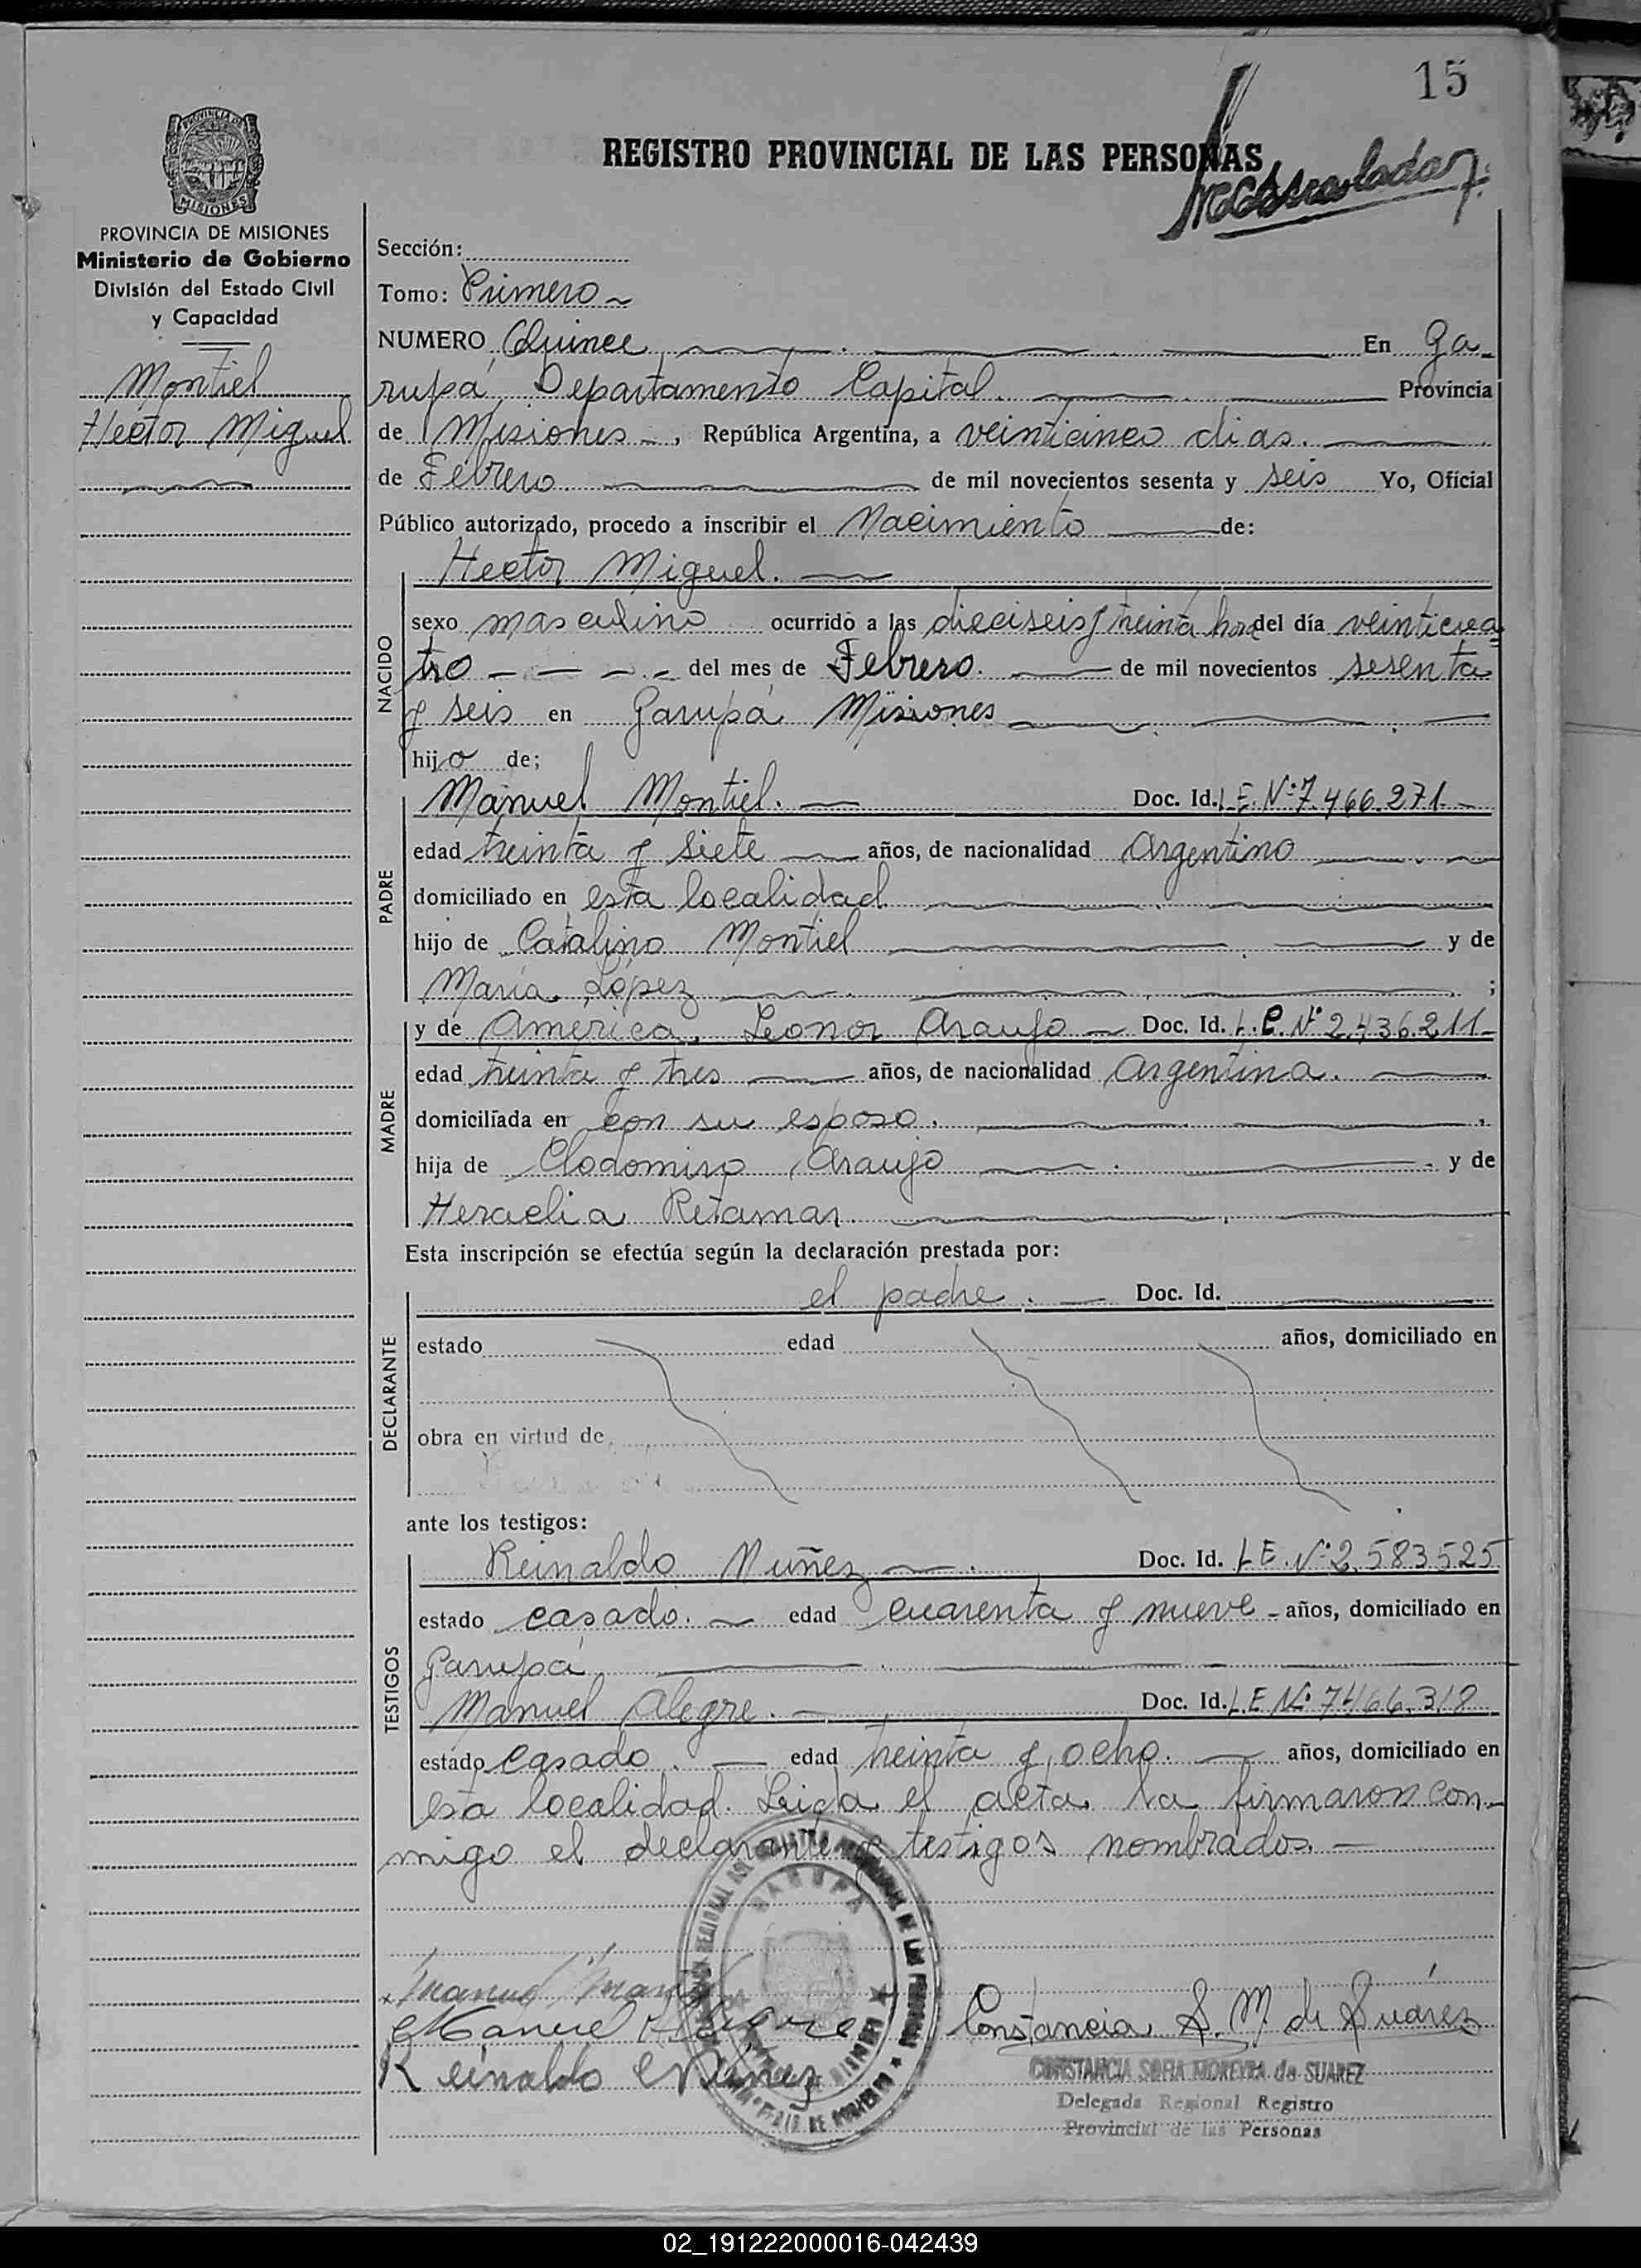 15
REGISTRO PROVINCIAL DE LAS PERSONAS
PROVINCIA DE MISIONES
Ministerio de Gobierno
División del Estado Civil
y Capacidad
Montiel
Hector Miguel
Sección:
Tomo: Primero
NUMERO Quince En Ga-
rupá, Departamento Capital. Provincia
de Misiones, República Argentina, a veinticinco dias.
de Febrero de mil novecientos sesenta y seis Yo, Oficial
Público autorizado, procedo a inscribir el Nacimiento de:
NACIDO
Hector Miguel.
sexo masculino ocurrido a las dieciseis y treinta horas del día veinticua
tro del mes de Febrero. de mil novecientos sesenta
y seis en Garupá Misiones
hijo de;
PADRE
Manuel Montiel. Doc. Id. L.E. Nº 7.466.271
edad treinta y siete años, de nacionalidad Argentino
domiciliado en esta localidad
hijo de Catalino Montiel y de
María López ;
MADRE
y de America Leonor Araujo Doc. Id. L.C. Nº 2.436.211
edad treinta y tres años, de nacionalidad Argentina.
domiciliada en con su esposo.
hija de Clodomiro Araujo y de
Heraclia Retamar.
Esta inscripción se efectúa según la declaración prestada por:
DECLARANTE
el padre. Doc. Id.
estado edad años, domiciliado en
obra en virtud de
ante los testigos:
TESTIGOS
Reinaldo Nuñez Doc. Id. L.E. Nº 2.583.525
estado casado. edad cuarenta y nueve años, domiciliado en
Garupá
Manuel Alegre. Doc. Id. L.E. Nº 7.466.318
estado casado. edad treinta y ocho. años, domiciliado en
esta localidad. Leida el acta la firmaron con-
migo el declarante y testigos nombrados.
GARUPA
Manuel Alegre
Reinaldo Nuñez
Constancia S. M. de Suárez
CONSTANCIA SOFIA MOREYRA de SUAREZ
Delegada Regional Registro
Provincial de las Personas
02_191222000016-042439